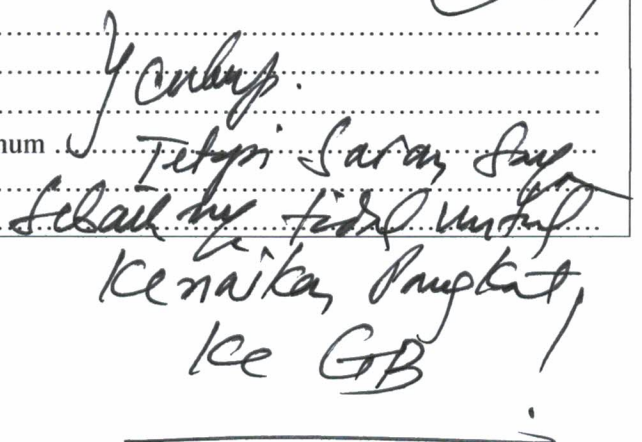 Y cukup.
num Tetapi Saran Saya
Sebaiknya tidak untuk
Kenaikan Pangkat
Ke GB !